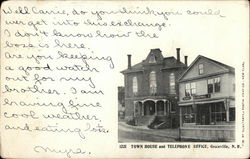 Well Carrie, do you think you could
wer get into this exchange.
I don't know how the
boss is here.
Are you keeping
a good watch
out for my
brother. I am
having fine
cool weather
and eating lots.
Myra.
1521 TOWN HOUSE AND TELEPHONE OFFICE, Greenville, N. H.